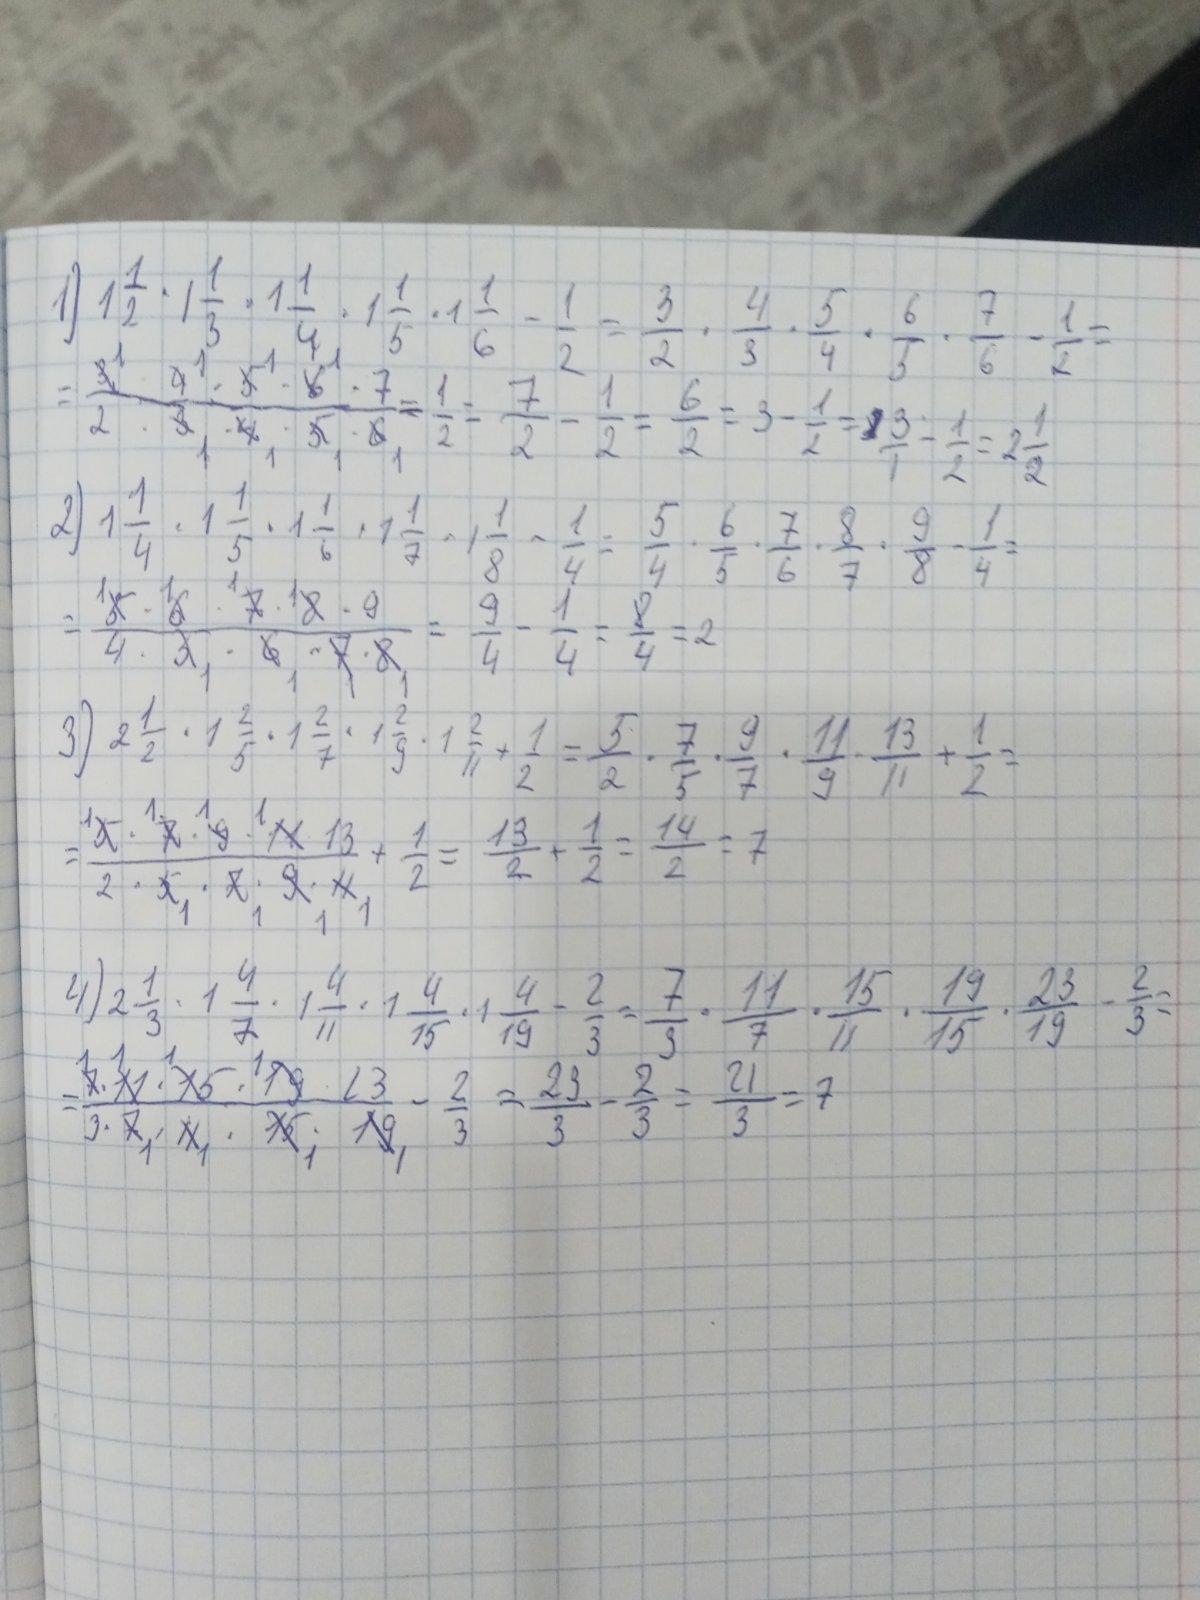 1) 1 1/2 · 1 1/3 · 1 1/4 · 1 1/5 · 1 1/6 - 1/2 = 3/2 · 4/3 · 5/4 · 6/5 · 7/6 - 1/2 =
= 3·4·5·6·7/2·3·4·5·6 = 1/2 = 7/2 - 1/2 = 6/2 = 3 - 1/2 = 3/1 - 1/2 = 2 1/2
2) 1 1/4 · 1 1/5 · 1 1/6 · 1 1/7 · 1 1/8 - 1/4 = 5/4 · 6/5 · 7/6 · 8/7 · 9/8 - 1/4 =
= 5·6·7·8·9/4·5·6·7·8 = 9/4 - 1/4 = 8/4 = 2
3) 2 1/2 · 1 2/5 · 1 2/7 · 1 2/9 · 1 2/11 + 1/2 = 5/2 · 7/5 · 9/7 · 11/9 · 13/11 + 1/2 =
= 5·7·9·11·13/2·5·7·9·11 + 1/2 = 13/2 + 1/2 = 14/2 = 7
4) 2 1/3 · 1 4/7 · 1 4/11 · 1 4/15 · 1 4/19 - 2/3 = 7/3 · 11/7 · 15/11 · 19/15 · 23/19 - 2/3 =
= 7·11·15·19·23/3·7·11·15·19 - 2/3 = 23/3 - 2/3 = 21/3 = 7